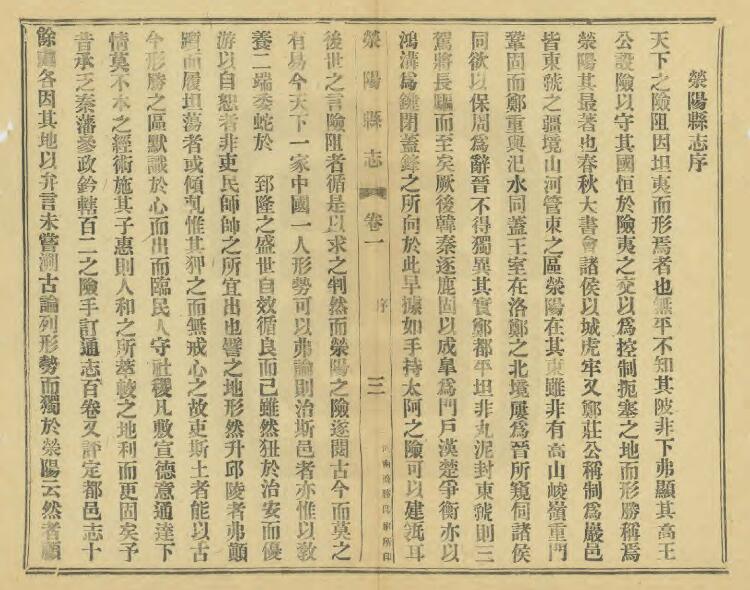 滎陽縣志序
天下之險阻因坦夷而形焉者也無平不知其陂非下弗顯其高王
公設險以守其國恒於險夷之交以爲控制扼塞之地而形勝稱焉
滎陽其最著也春秋大書會諸侯以城虎牢又鄭莊公稱制爲嚴邑
皆東虢之疆境山河管束之區滎陽在其東雖非有高山峻嶺重門
鞏固而鄭重與汜水同蓋王室在洛鄭之北境屢爲晉所窺伺諸侯
同欲以保周爲辭晉不得獨異其實鄭都平坦非丸泥封東虢則三
駕將長驅而至矣厥後韓秦逐鹿固以成臯爲門戶漢楚爭衡亦以
鴻溝爲鍵閉蓋鋒之所向於此早據如手持太阿之險可以建瓴耳
滎陽縣志
卷一
序
三
後世之言險阻者循是以求之判然而滎陽之險遂閱古今而莫之
有易今天下一家中國一人形勢可以弗論則治斯邑者亦惟以敎
養二端委蛇於 郅隆之盛世自效循良而已雖然狃於治安而優
游以自恕者非吏民師帥之所宜出也譬之地形然升邱陵者弗顚
躓而履坦蕩者或傾軋惟其狎之而無戒心之故吏斯土者能以古
今形勝之區默識於心而出而臨民人守社稷凡敷宣德意通達下
情莫不本之經術施其子惠則人和之所萃較之地利而更固矣予
昔承乏秦藩參政鈐轄百二之險手訂通志百卷又評定都邑志十
餘 各因其地以弁言未嘗溯古論列形勢而獨於滎陽云然者顧